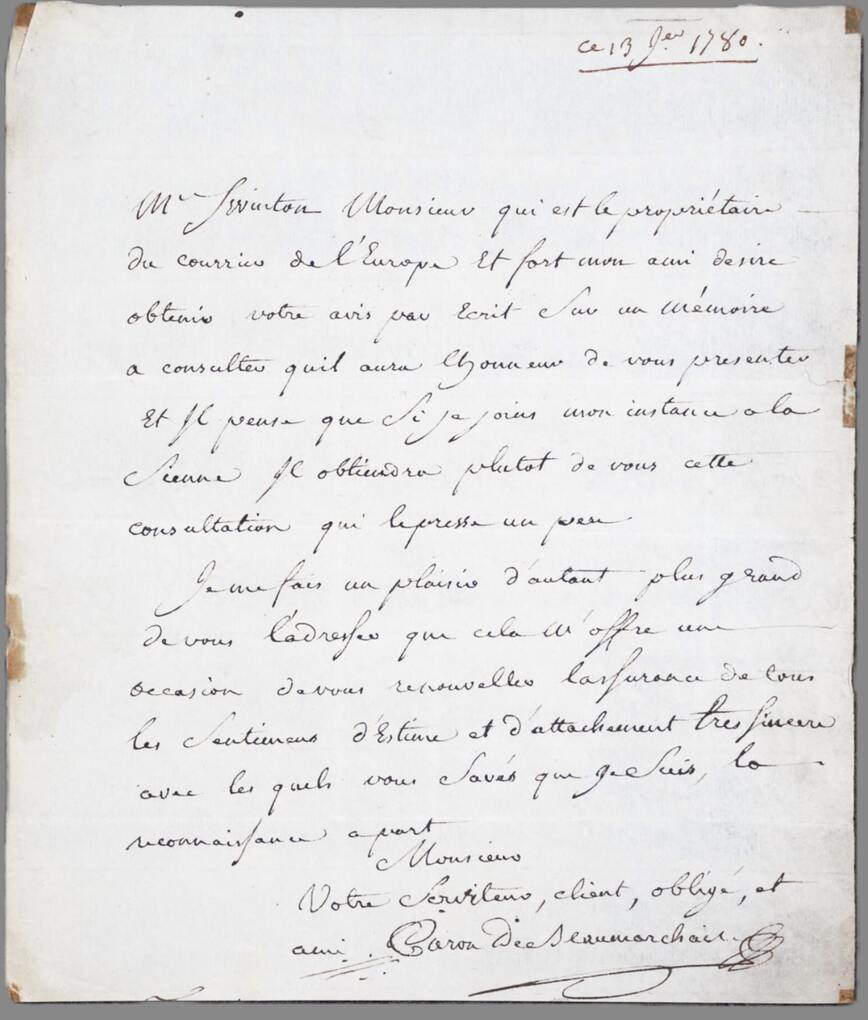 ce 13 Jer 1780.
Mr Swinton Monsieur qui est le propriétaire
du courrier de l'Europe Et fort mon ami desire
obtenir votre avis par Ecrit Sur un Mémoire
a consulter quil aura lhonneur de vous presenter
Et Il pense que Si je joins mon instance a la
Sienne Il obtiendra plutot de vous cette
consultation qui le presse un peu.
Je me fais un plaisir d'autant plus grand
de vous l'adresser que cela M'offre une
occasion de vous renouveller lassurance de tous
les Sentimens d'Estime et d'attachement tres sincere
avec les quels vous Savés que Je Suis, la
reconnaissance a part
Monsieur
Votre Serviteur, client, obligé, et
ami. Caron De Beaumarchais.